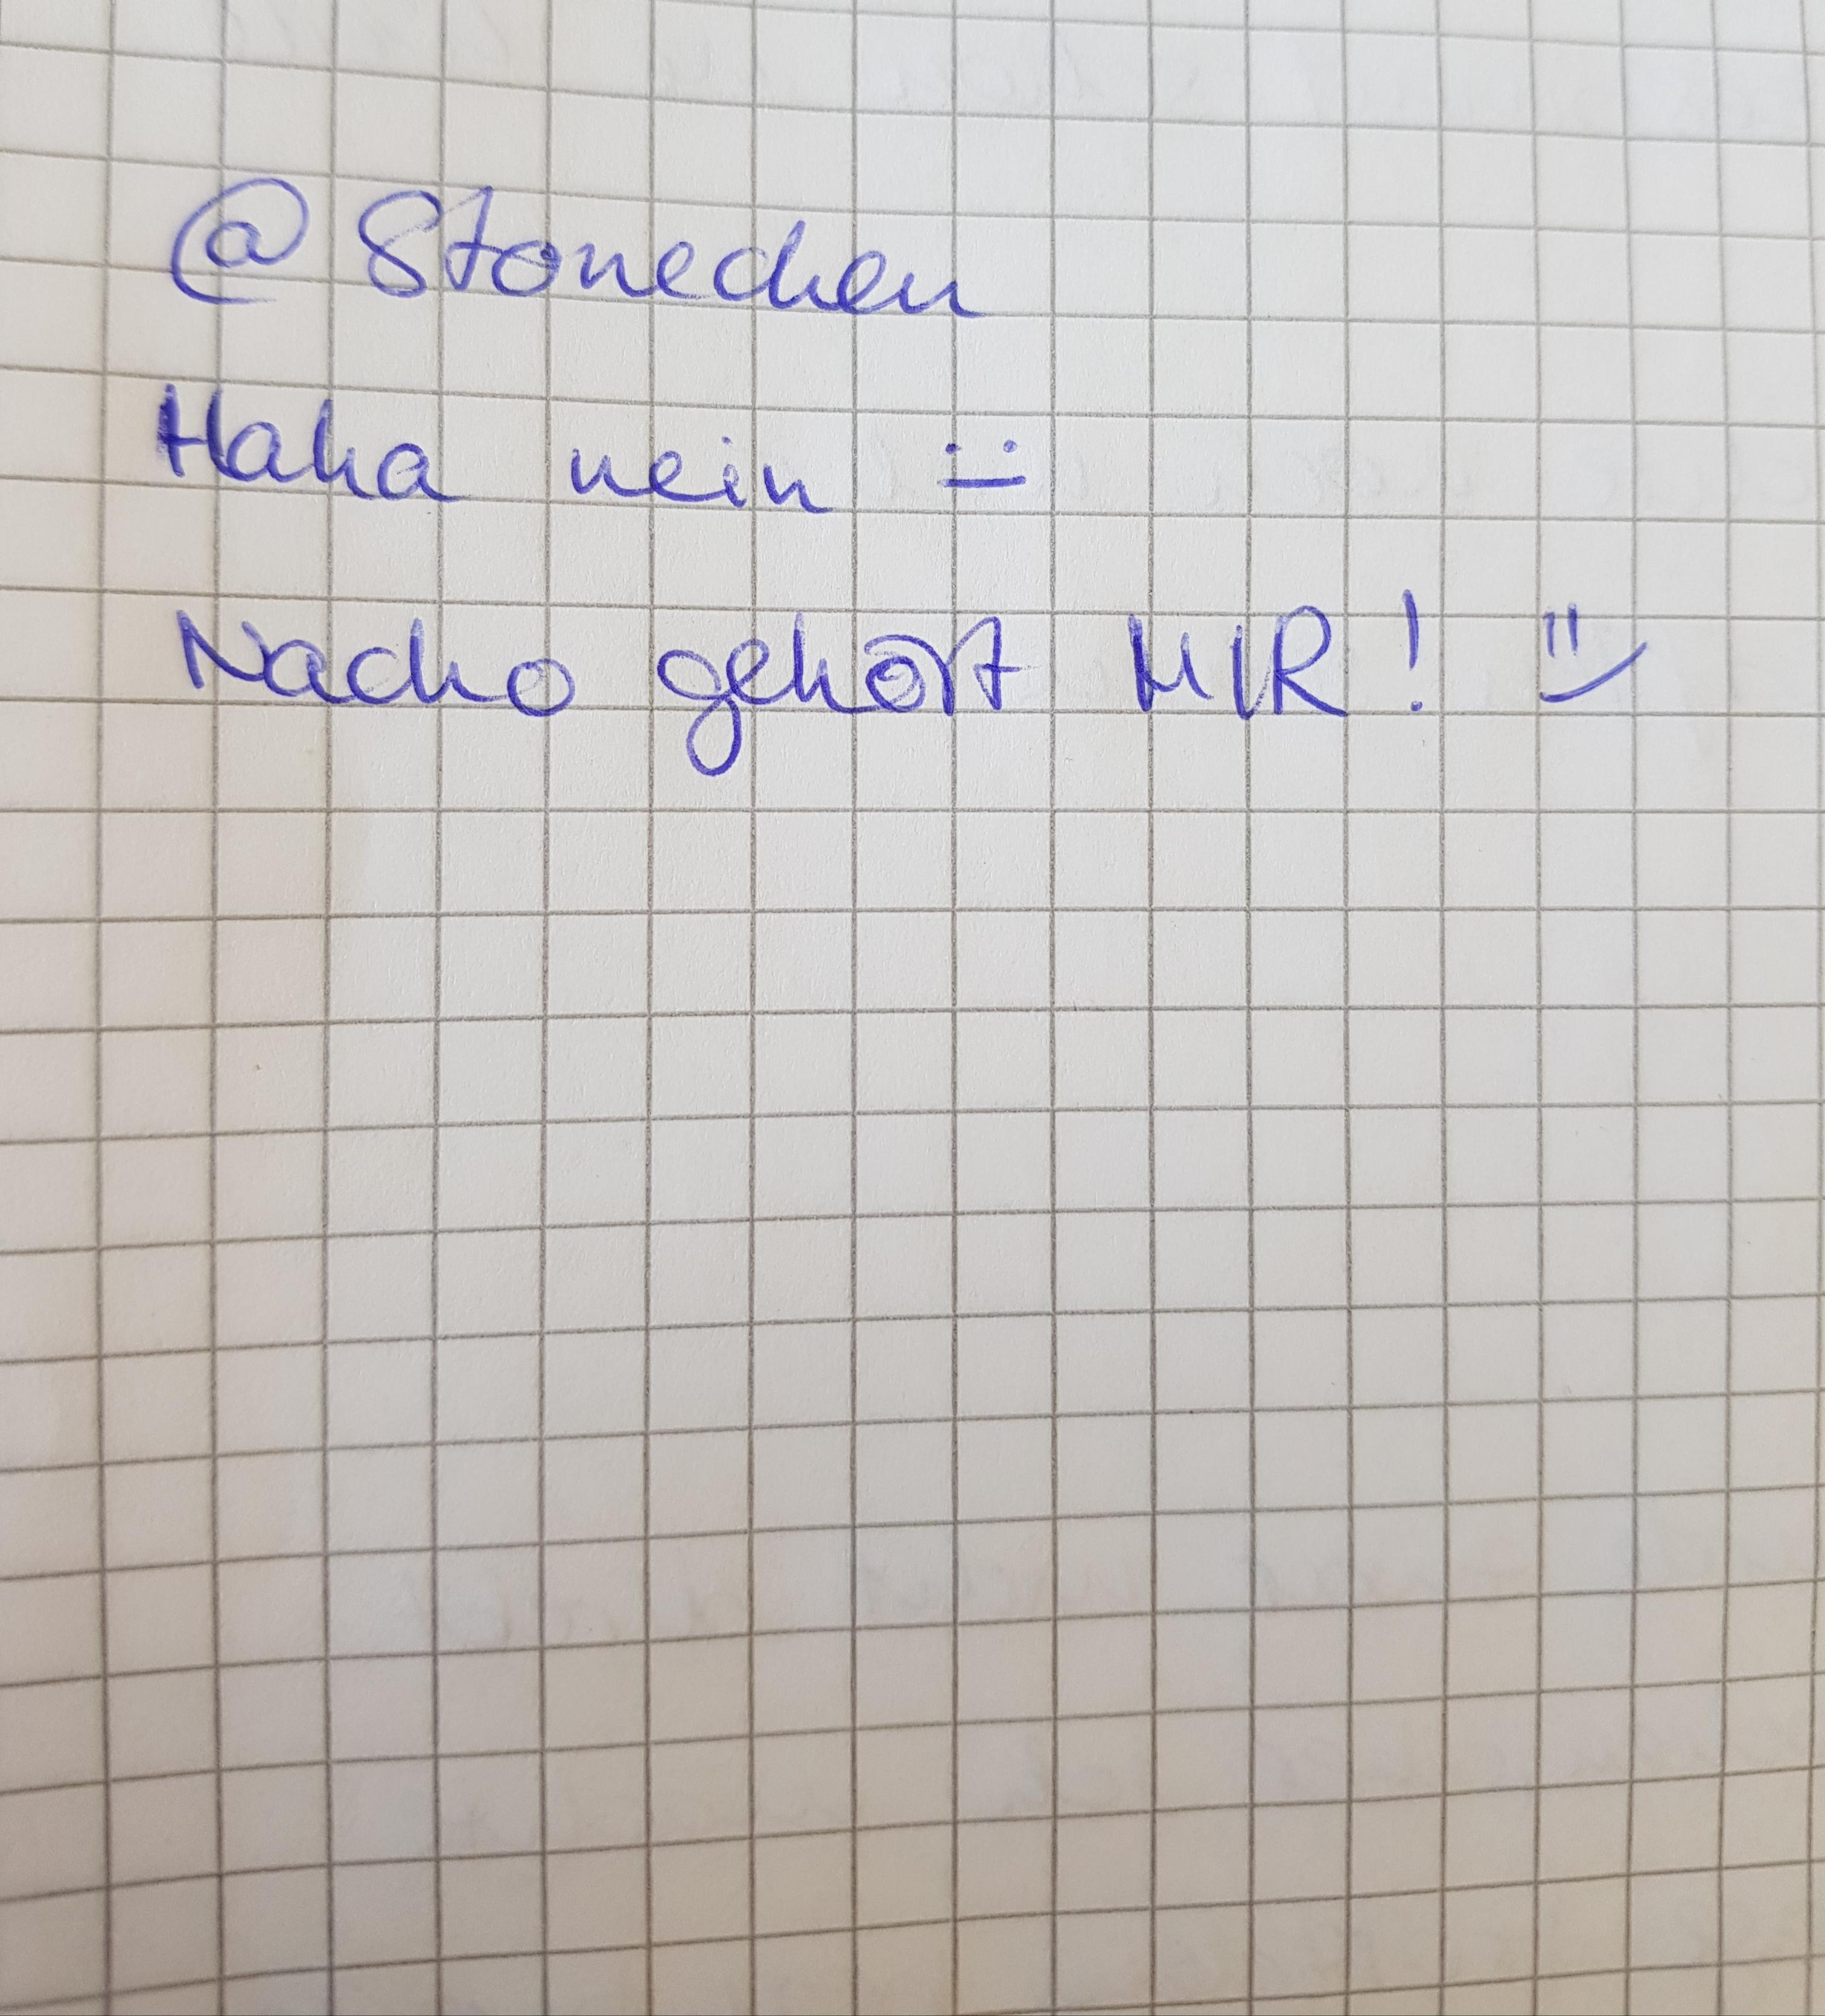 @Stonechen
Haha nein :|
Nacho gehört MIR! =)